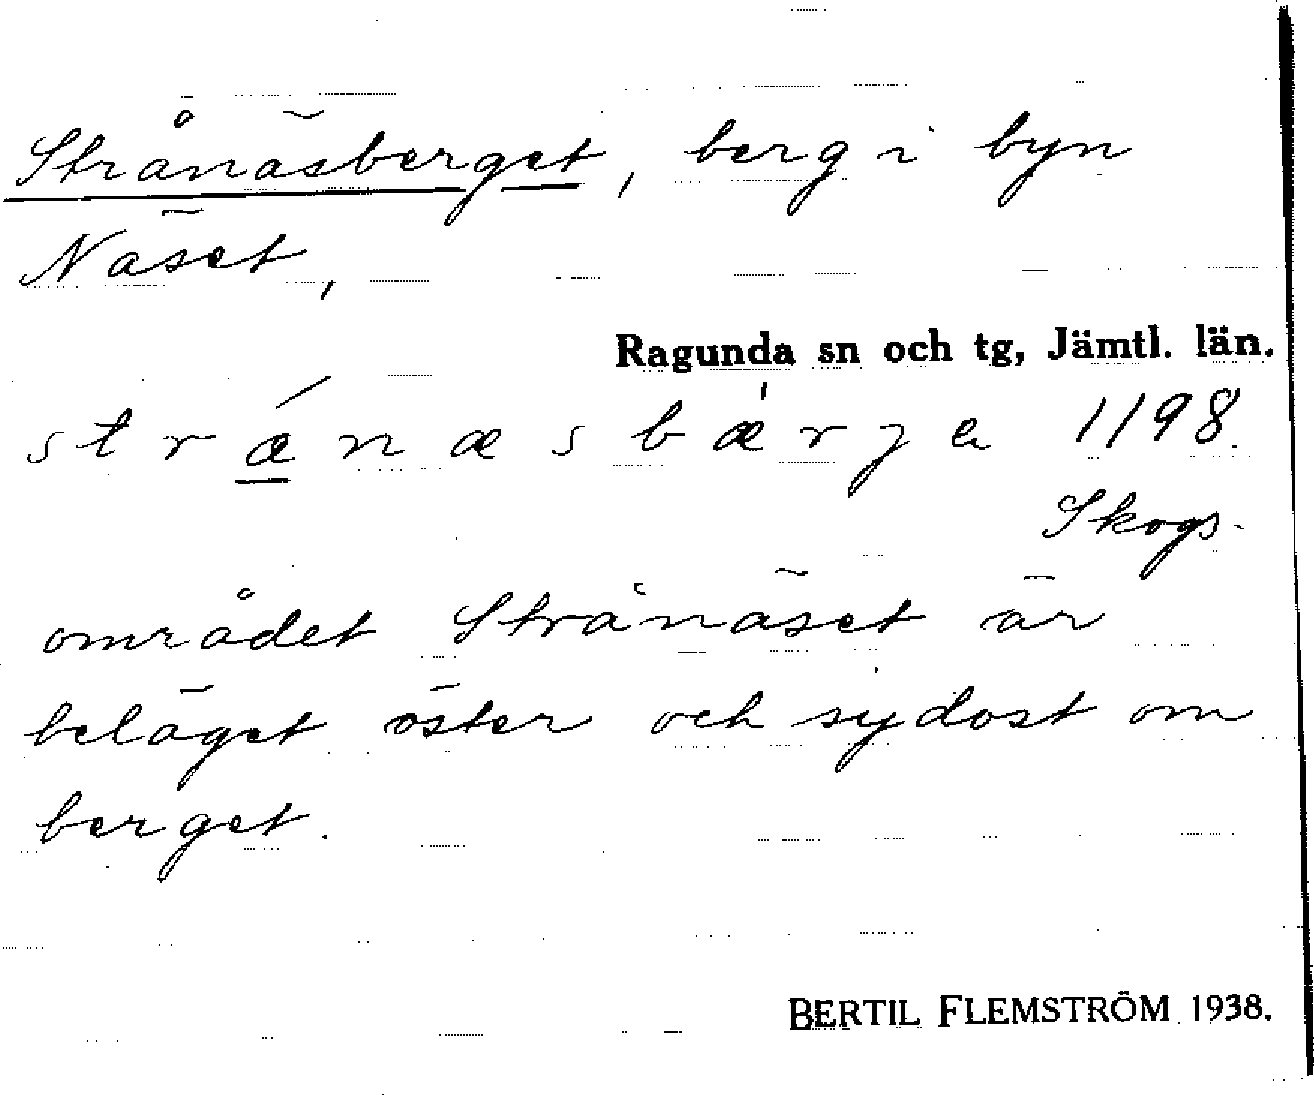 Strånäsberget, berg i byn
Näset,
Ragunda sn och tg, Jämtl. län.
strǽnæsbǽrje 1198.
Skogs-
området Strånäset är
beläget öster och sydost om
berget.
BERTIL FLEMSTRÖM 1938.